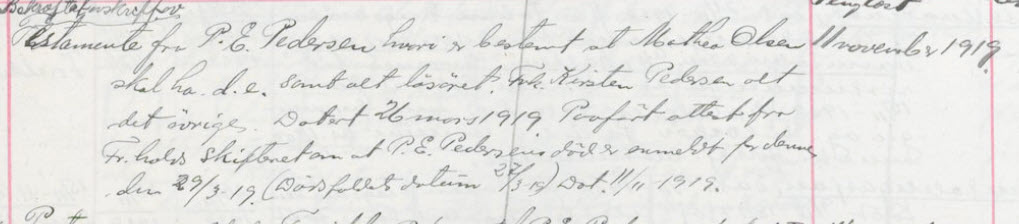 Bekræftafskrift av Tinglest
Testamente fra P. E. Pedersen hvori er bestemt at Mathea Olsen 11 november 1919.
skal ha d.e. samt alt løsøret. Frk. Kirsten Pedersen alt
det øvrige. Datert 26 mars 1919 Paaført attest fra
Fr.holds Skifteret om at P. E. Pedersens død er anmeldt for denne
den 29/3-19. (Dødsfaldets datum 27/3 19) Dat. 11/11-1919.